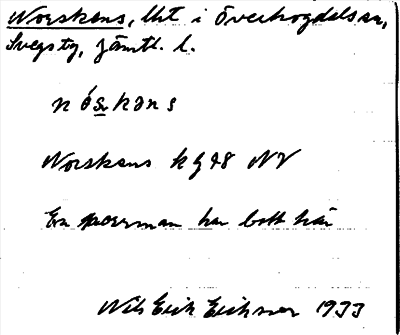 Norskens, lht i Överhogdals sn,
Svegs tg, Jämtl. l.
nós̲kəns
Norskens kg 48 NV
En norrman har bott här
Nils Erik Eichner 1933